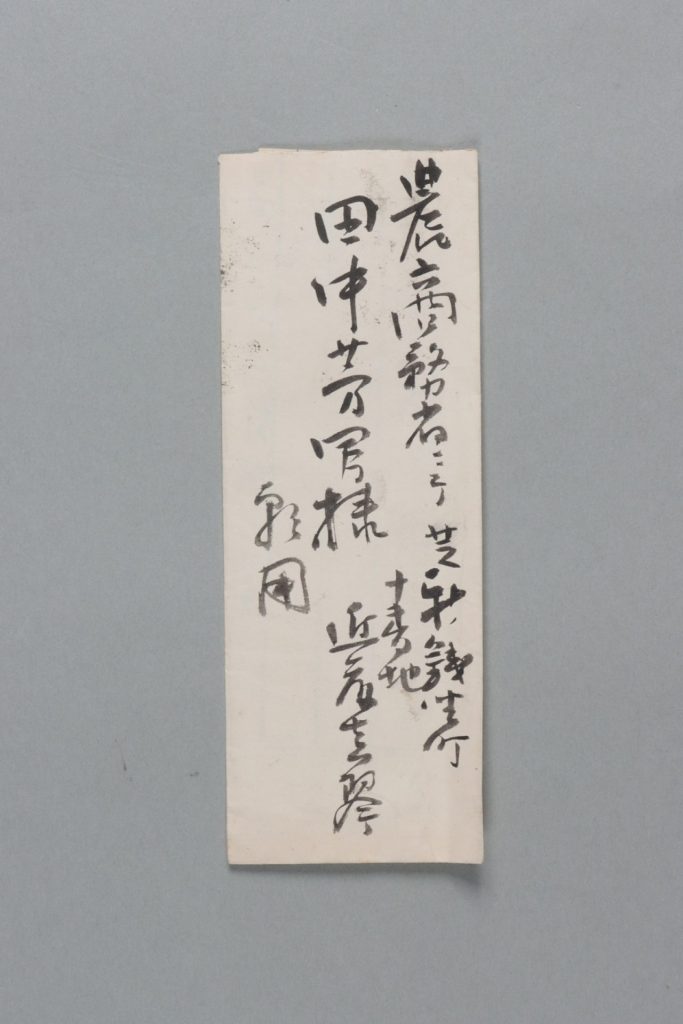 農商務省ニテ
田中芳男様
願用
芝新銭座町
十番地
近藤真琴